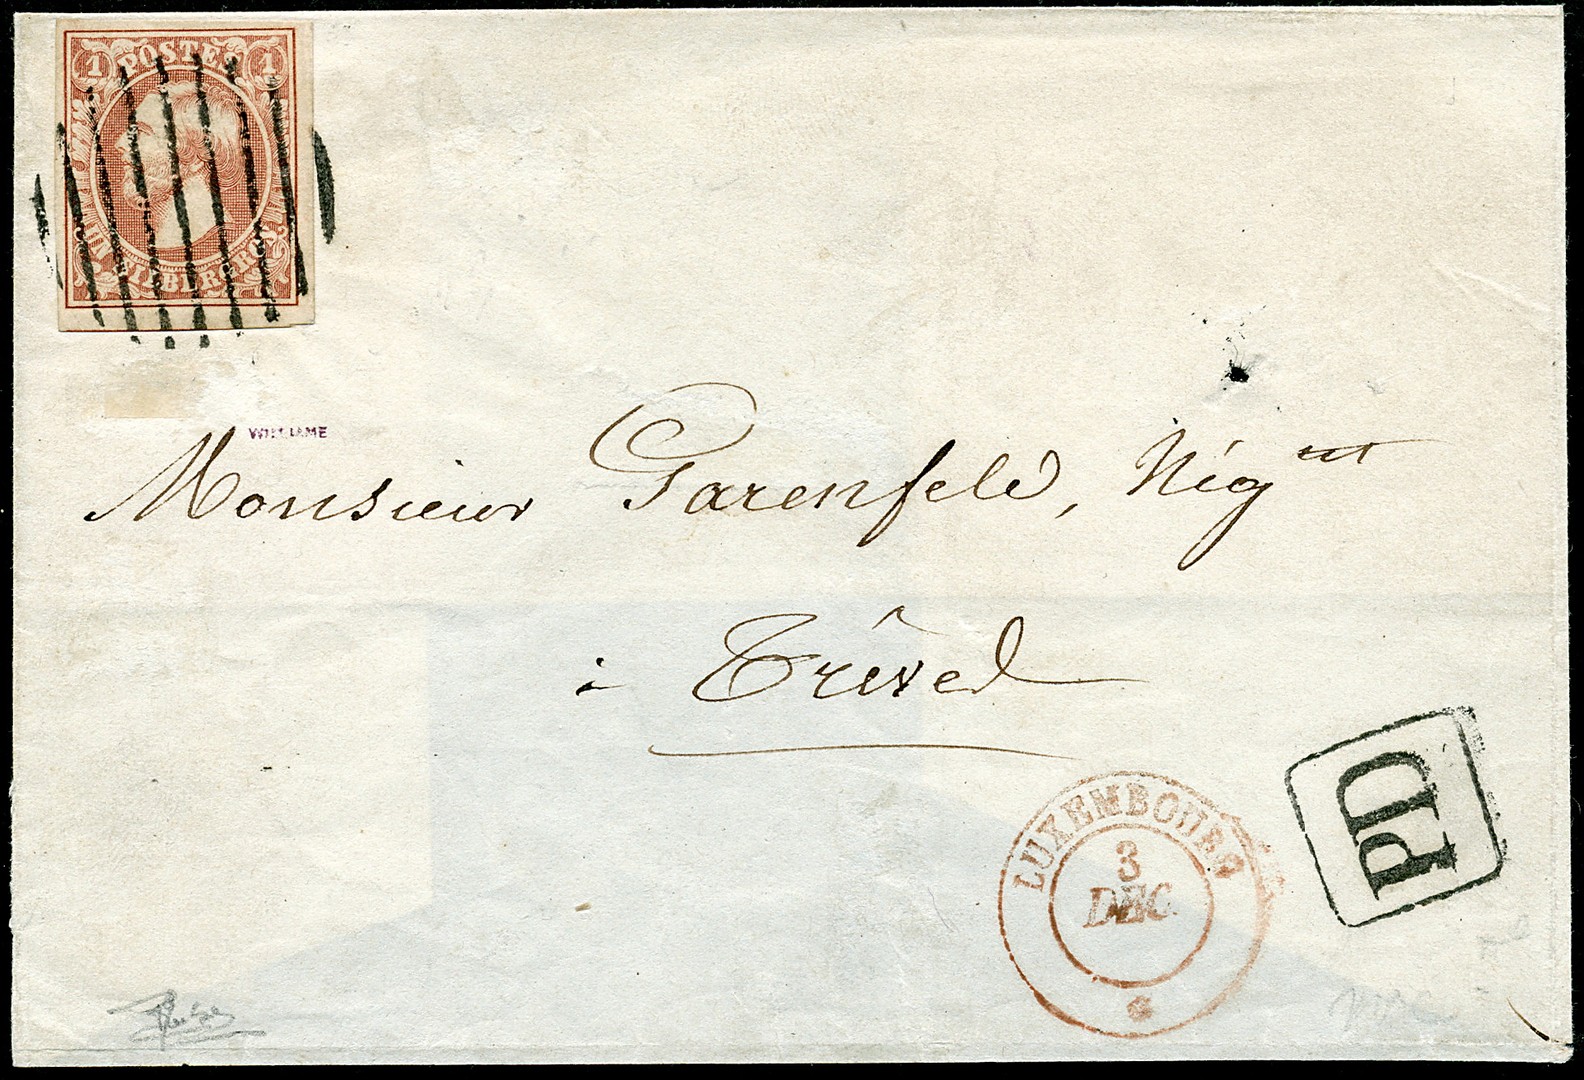 1 POSTES 1
UN SILBERGROS.
WILLIAME
Monsieur Garenfeld, Nég^nt
à Trèves
LUXEMBOURG
3
DEC.
PD